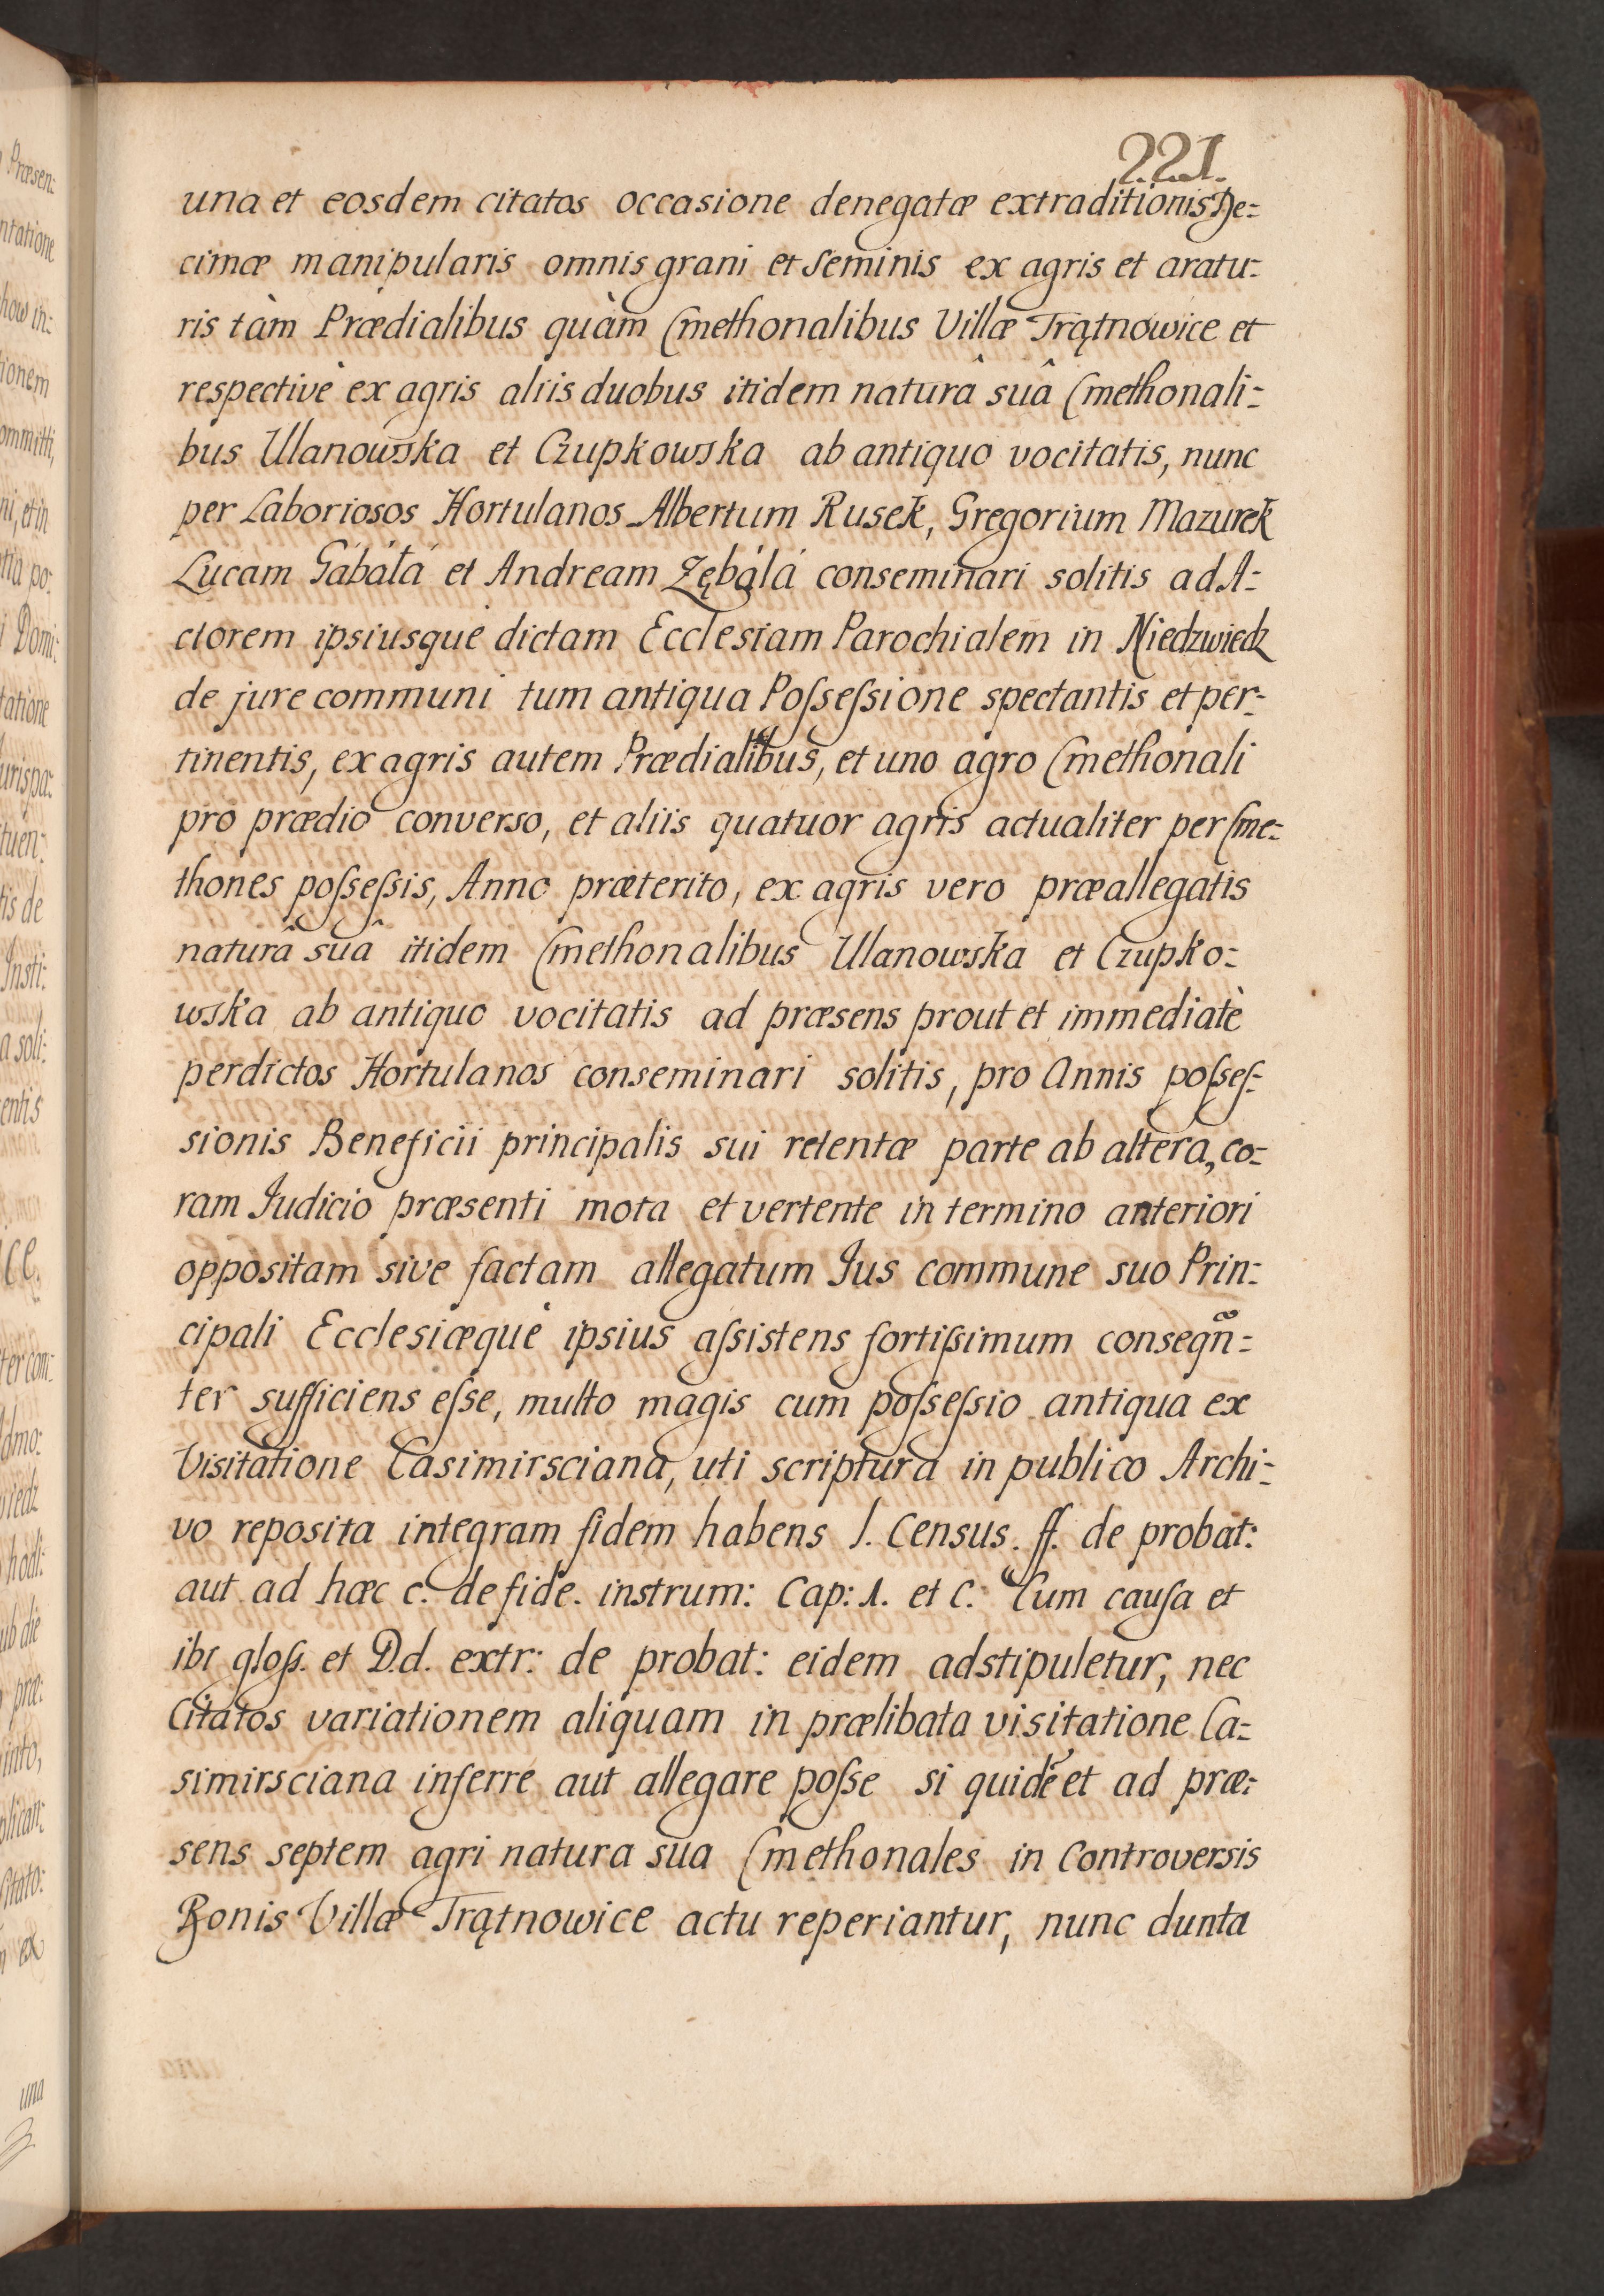 221.
una et eosdem citatos occasione denegatæ extraditionis De=
cimæ manipularis omnis grani et Seminis ex agris et aratu=
ris tàm Prædialibus quàm Cmethonalibus Villæ Trątnowice et
respectivè ex agris aliis duobus itidem naturâ suâ Cmethonali=
bus Ulanowska et Czupkowska ab antiquo vocitatis, nunc
per Laboriosos Hortulanos Albertum Rusek, Gregorium Mazurek
Lucam Gábálá et Andream Zębálá conseminari solitis ad A=
ctorem ipsiusque dictam Ecclesiam Parochialem in Niedzwiedz
de jure communi tum antiqua Poſseſsione spectantis et per=
tinentis, ex agris autem Prædialibus, et uno agro Cmethonali
pro prædio converso, et aliis quatuor agris actualiter per Cme=
thones poſseſsis, Anno præterito, ex agris vero præallegatis
naturâ suâ itidem Cmethonalibus Ulanowska et Czupko=
wska ab antiquo vocitatis ad præsens prout et immediatè
per dictos Hortulanos conseminari solitis, pro Annis poſseſ=
sionis Beneficii principalis sui retentæ parte ab altera, co=
ram Judicio præsenti mota et vertente in termino anteriori
oppositam sive factam allegatum Jus commune suo Prin=
cipali Ecclesiæque ipsius aſsistens fortiſsimum conseqñ=
ter sufficiens eſse, multo magis cum poſseſsio antiqua ex
Visitatione Casimirsciana, uti scriptura in publico Archi=
vo reposita integram fidem habens l. Census. ff. de probat:
aut ad hæc c. de fide. instrum: Cap: 1. et C. Cum cauſa et
ibi gloſs. et D.d. extr: de probat: eidem adstipuletur, nec
Citatos variationem aliquam in prælibata visitatione Ca=
simirsciana inferre aut allegare poſse si quidē et ad præ=
sens septem agri natura sua Cmethonales in Controversis
Bonis Villæ Trątnowice actu reperiantur, nunc dunta